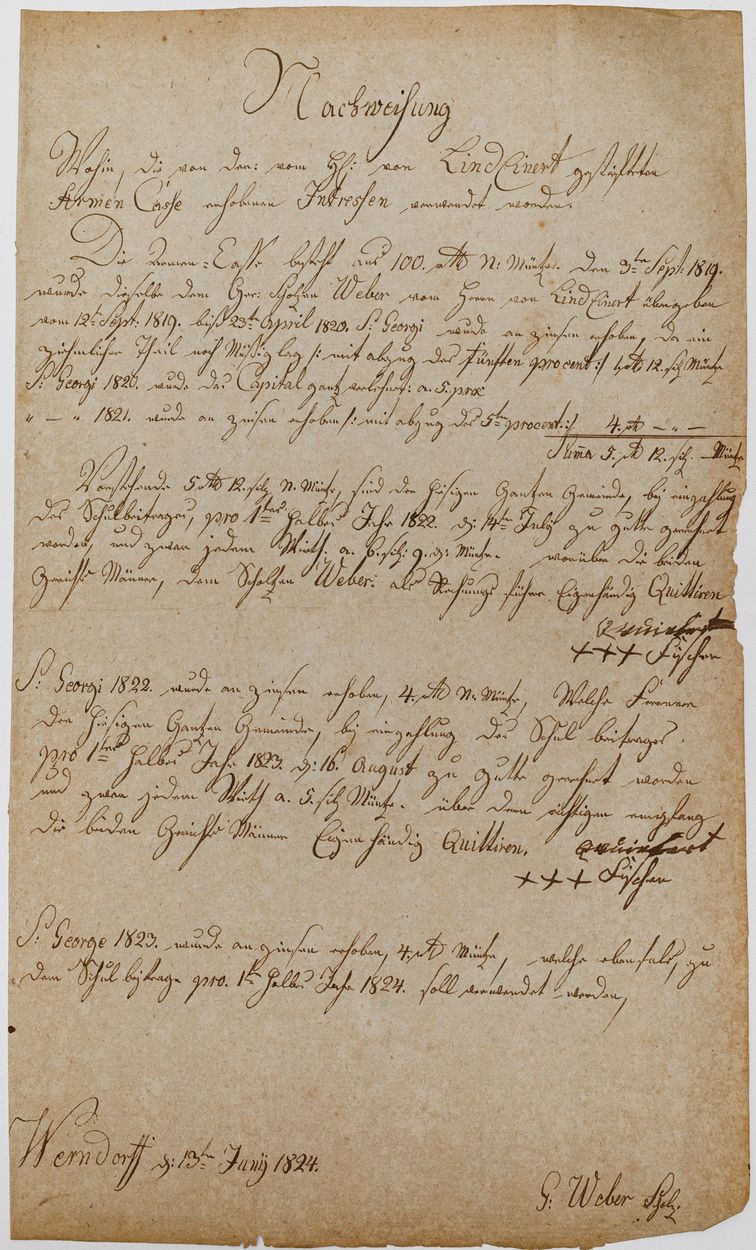 Nachweisung
Wohin, die von der: vom Hh: von LindEinert gestifteten
Armen Casse erhobenen Intressen verwendet worden.
Die Armen-Casse besteht aus 100. rthl N: Müntze. Den 3te Sept: 1819.
wurde dieselbe dem Ger: Scholzen Weber vom Herrn von LindEinert übergeben
vom 12te Sept: 1819. biß 23te April 1820. S: Georgi wurde an zinsen erhoben, da ein
ziehmlicher Theil noch Müßig lag /: mit abzug des fünften procent :/ 1 rthl 12. sgl Müntze
S: Georgi 1820. wurde das Capital gantz verlehnet: a. 5. pro
" — " 1821. wurde an zinsen erhoben /: mit abzug des 5ten procent :/ 4. rthl — " —
Suma 5. rthl 12. sgl. — Müntze
Vorstehende 5 rthl 12. sgl. N. Müntze, sind der hiesigen Gantzen Gemeinde, bei einzahlung
des Schulbeitrages, pro 1tes halbes Jahr 1822. d: 14te July zu gutte gerechnet
worden, und zwar jedem Wirth. a. 6. sgl: 9. d: Müntze. worüber die beiden
Gerichts Männer, dem Scholzen Weber: als Rechnungs führer Eigenhändig Quittiren
+++ Fischer
S: Georgi 1822. wurde an zinsen erhoben, 4. rthl N. Müntze, Welche
der hiesigen Gantzen Gemeinde, bei einzahlung des Schul beitrages.
pro 1tes halbes Jahr 1823. d: 16. August zu gutte gerechnet worden
und zwar jedem Wirth a. 5. sgl Müntze. über dem richtigen empfang
die beiden Gerichts Männer Eigenhändig Quittiren.
+++ Fischer
S: George 1823. wurde an zinsen erhoben, 4. rthl Müntze, welche ebenfals, zu
dem Schul beitrage pro. 1te halbes Jahr 1824. soll verwendet werden,
Werndorff d: 13te Junÿ 1824.
G: Weber Scholz.